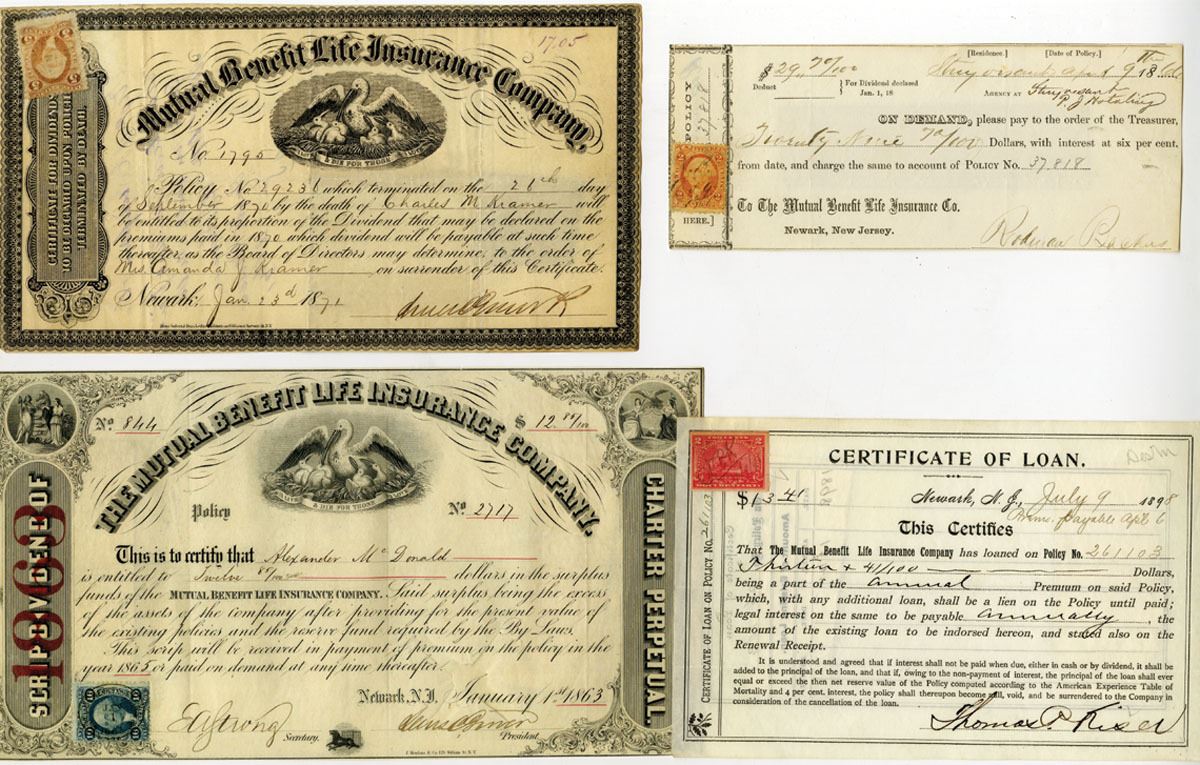 1705
Mutual Benefit Life Insurance Company,
LIVE & DIE FOR THOSE WE LOVE
CERTIFICATE FOR DIVIDENDS
TO BE DECLARED UPON POLICY
TERMINATED BY DEATH.
No. 1795
Policy No 29236 which terminated on the 26th day
of September 1870 by the death of Charles M Kramer will
be entitled to its proportion of the Dividend that may be declared on the
premiums paid in 1870 which dividend will be payable at such time
thereafter, as the Board of Directors may determine, to the order of
Mrs. Amanda J Kramer on surrender of this Certificate.
Newark, Jan. 23d 1871
[Residence.] [Date of Policy.]
$29,, 70/100
April 9th 18
Deduct
For Dividend declared
Jan. 1, 18
AGENCY AT Stuyvesant
POLICY
37,818
HERE.]
ON DEMAND, please pay to the order of the Treasurer,
Twenty Nine 70/100 Dollars, with interest at six per cent.
from date, and charge the same to account of POLICY NO. 37.818
To The Mutual Benefit Life Insurance Co.
Newark, New Jersey.
THE MUTUAL BENEFIT LIFE INSURANCE COMPANY,
No 844
$ 12
LIVE & DIE FOR THOSE WE LOVE
SCRIP DIVIDEND OF
1863
CHARTER PERPETUAL.
Policy No 2717
This is to certify that Alexander McDonald
is entitled to Twelve dollars in the surplus
funds of the MUTUAL BENEFIT LIFE INSURANCE COMPY. Said surplus being the excess
of the assets of the company after providing for the present value of
the existing policies and the reserve fund required by the By Laws.
This scrip will be received in payment of premium on the policy in the
year 1865 or paid on demand at any time thereafter.
Newark, N.J. January 1st 1863
Secretary.
President.
CERTIFICATE OF LOAN.
Death
$13.41
Newark, N. J., July 9 1898
Prem. Payable Apl 6
This Certifies
CERTIFICATE OF LOAN ON POLICY NO. 261103
That The Mutual Benefit Life Insurance Company has loaned on Policy No. 261103
Thirteen & 41/100 Dollars,
being a part of the Annual Premium on said Policy,
which, with any additional loan, shall be a lien on the Policy until paid;
legal interest on the same to be payable annually, the
amount of the existing loan to be indorsed hereon, and stated also on the
Renewal Receipt.
It is understood and agreed that if interest shall not be paid when due, either in cash or by dividend, it shall be
added to the principal of the loan, and that if, owing to the non-payment of interest, the principal shall ever
equal or exceed the then net reserve value of the Policy computed according to the American Experience Table of
Mortality and 4 per cent. interest, the policy shall thereupon become null, void, and be surrendered to the Company in
consideration of the cancellation of the loan.
Thomas P. Kiser